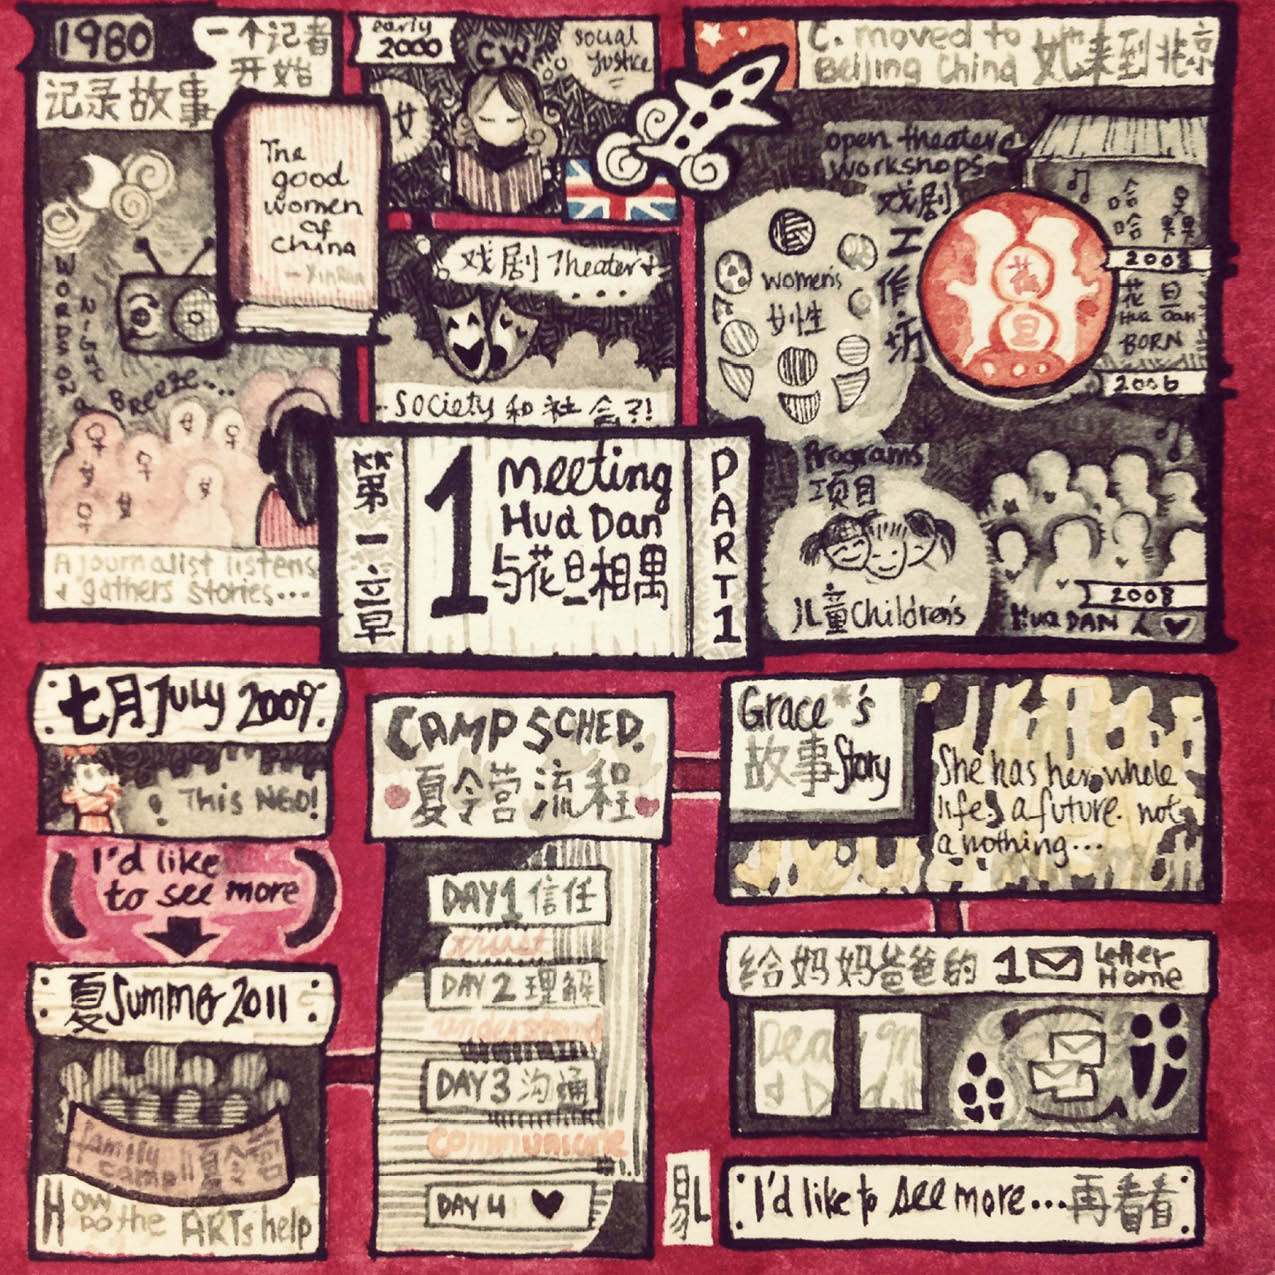 1980
一个记者
开始
记录故事
The
good
women
of
China
- XinRan
WORDS ON
NIGHT
a BREEZE...
A journalist listens
& gathers stories...
early
2000
social
justice
女
戏剧 Theater +
....
Society 和社会?!
C. moved to
Beijing China 她来到北京
open theater
workshops
戏剧
工作坊
women's
女性
花
旦
哈
哈
花旦
Hua Dan
BORN
2006
Programs
项目
儿童 Children's
2008
Hua DAN 人 ♥
第一章
1
Meeting
Hua Dan
与花旦相遇
PART 1
七月 July 2009
This NGO!
I'd like
to see more
夏 Summer 2011
family
camp 夏令营
How
DO the ARTs help
CAMP SCHED.
夏令营流程
DAY 1 信任
trust
DAY 2 理解
understand
DAY 3 沟通
communicate
DAY 4 ♥
Grace's
故事 Story
She has her whole
life. a future. not
a nothing...
给妈妈爸爸的 1 Letter
Home
I'd like to see more... 再看看